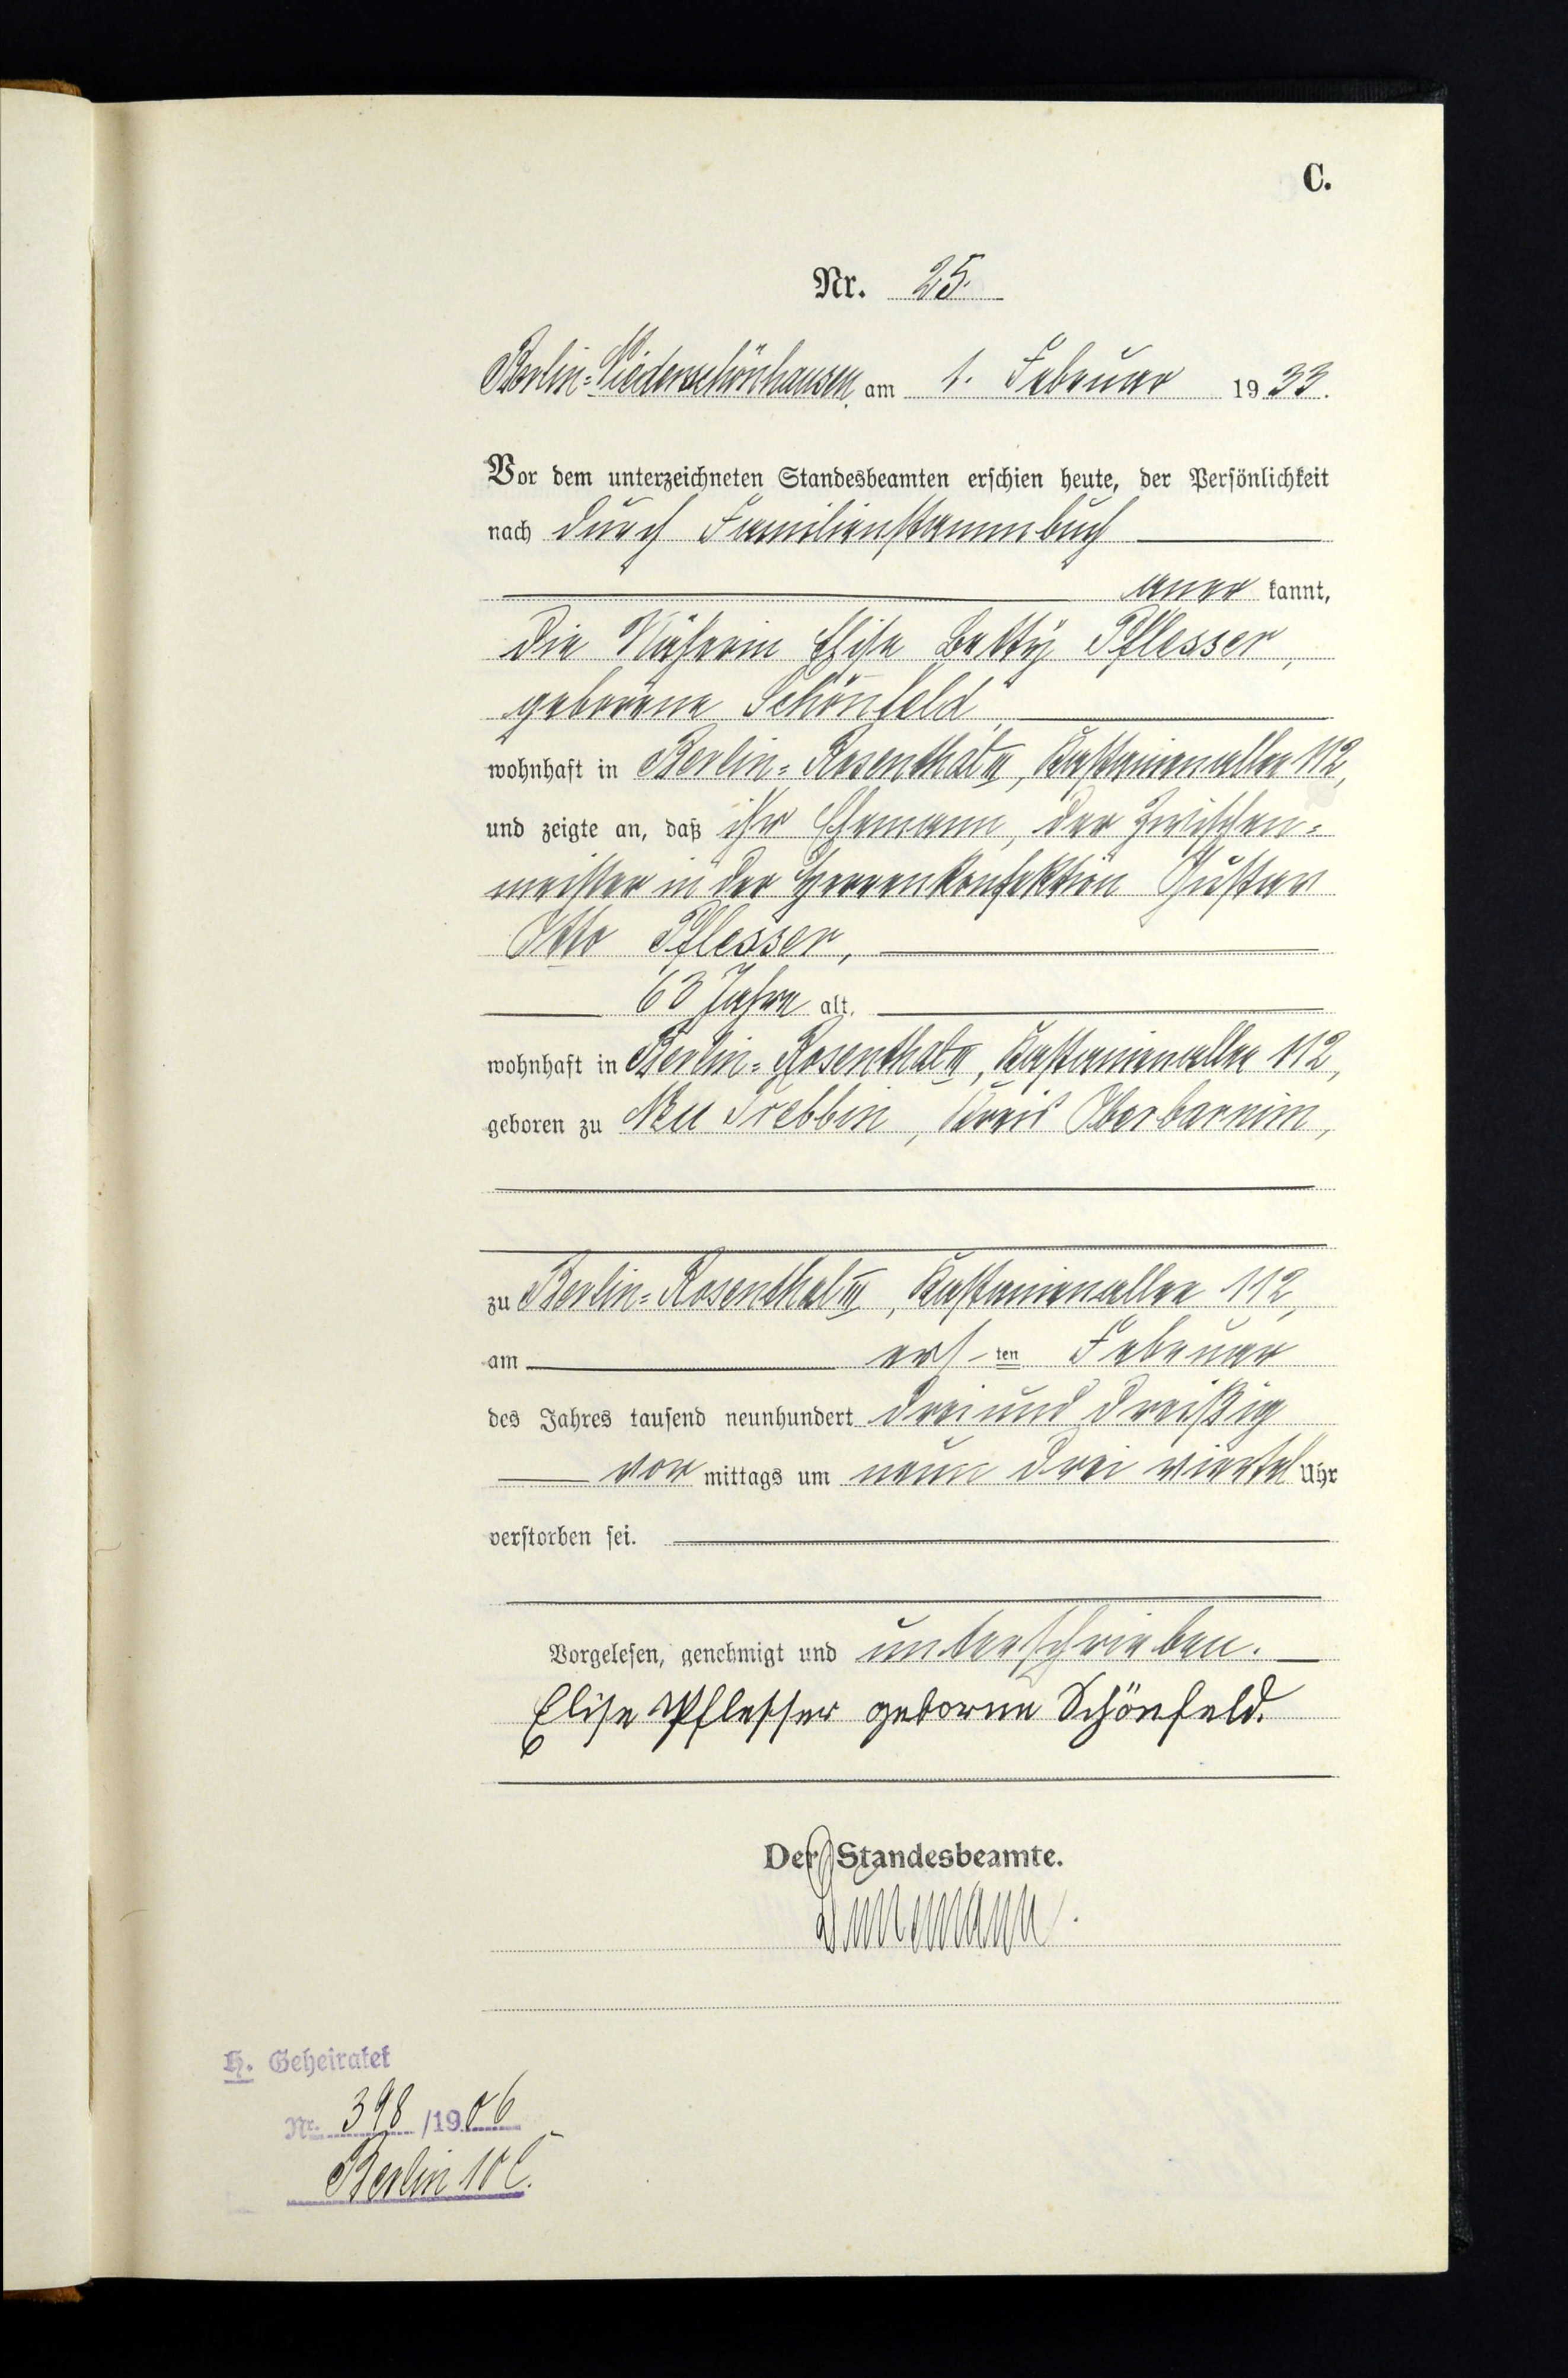 C.
Nr. 25.
Berlin-Niederschönhausen am 1. Februar 1933.
Vor dem unterzeichneten Standesbeamten erschien heute, der Persönlichkeit
nach durch Familienstammbuch
aner kannt,
die Näherin Elise Betty Pflesser,
geborene Schönfeld,
wohnhaft in Berlin-Rosenthal III, Kastanienallee 112,
und zeigte an, daß ihr Ehemann, der Zwischen-
meister in der Herrenkonfektion Gustav
Otto Pflesser,
63 Jahre alt,
wohnhaft in Berlin-Rosenthal III, Kastanienallee 112,
geboren zu Neu Trebbin, Kreis Oberbarnim,
zu Berlin-Rosenthal III, Kastanienallee 112,
am ers-ten Februar
des Jahres tausend neunhundert dreiunddreißig
vor mittags um neun drei viertel Uhr
verstorben sei.
Vorgelesen, genehmigt und unterschrieben.
Elise Pflesser geborne Schönfeld.
Der Standesbeamte.
H. Geheiratet
Nr. 398/1906
Berlin 10 C.